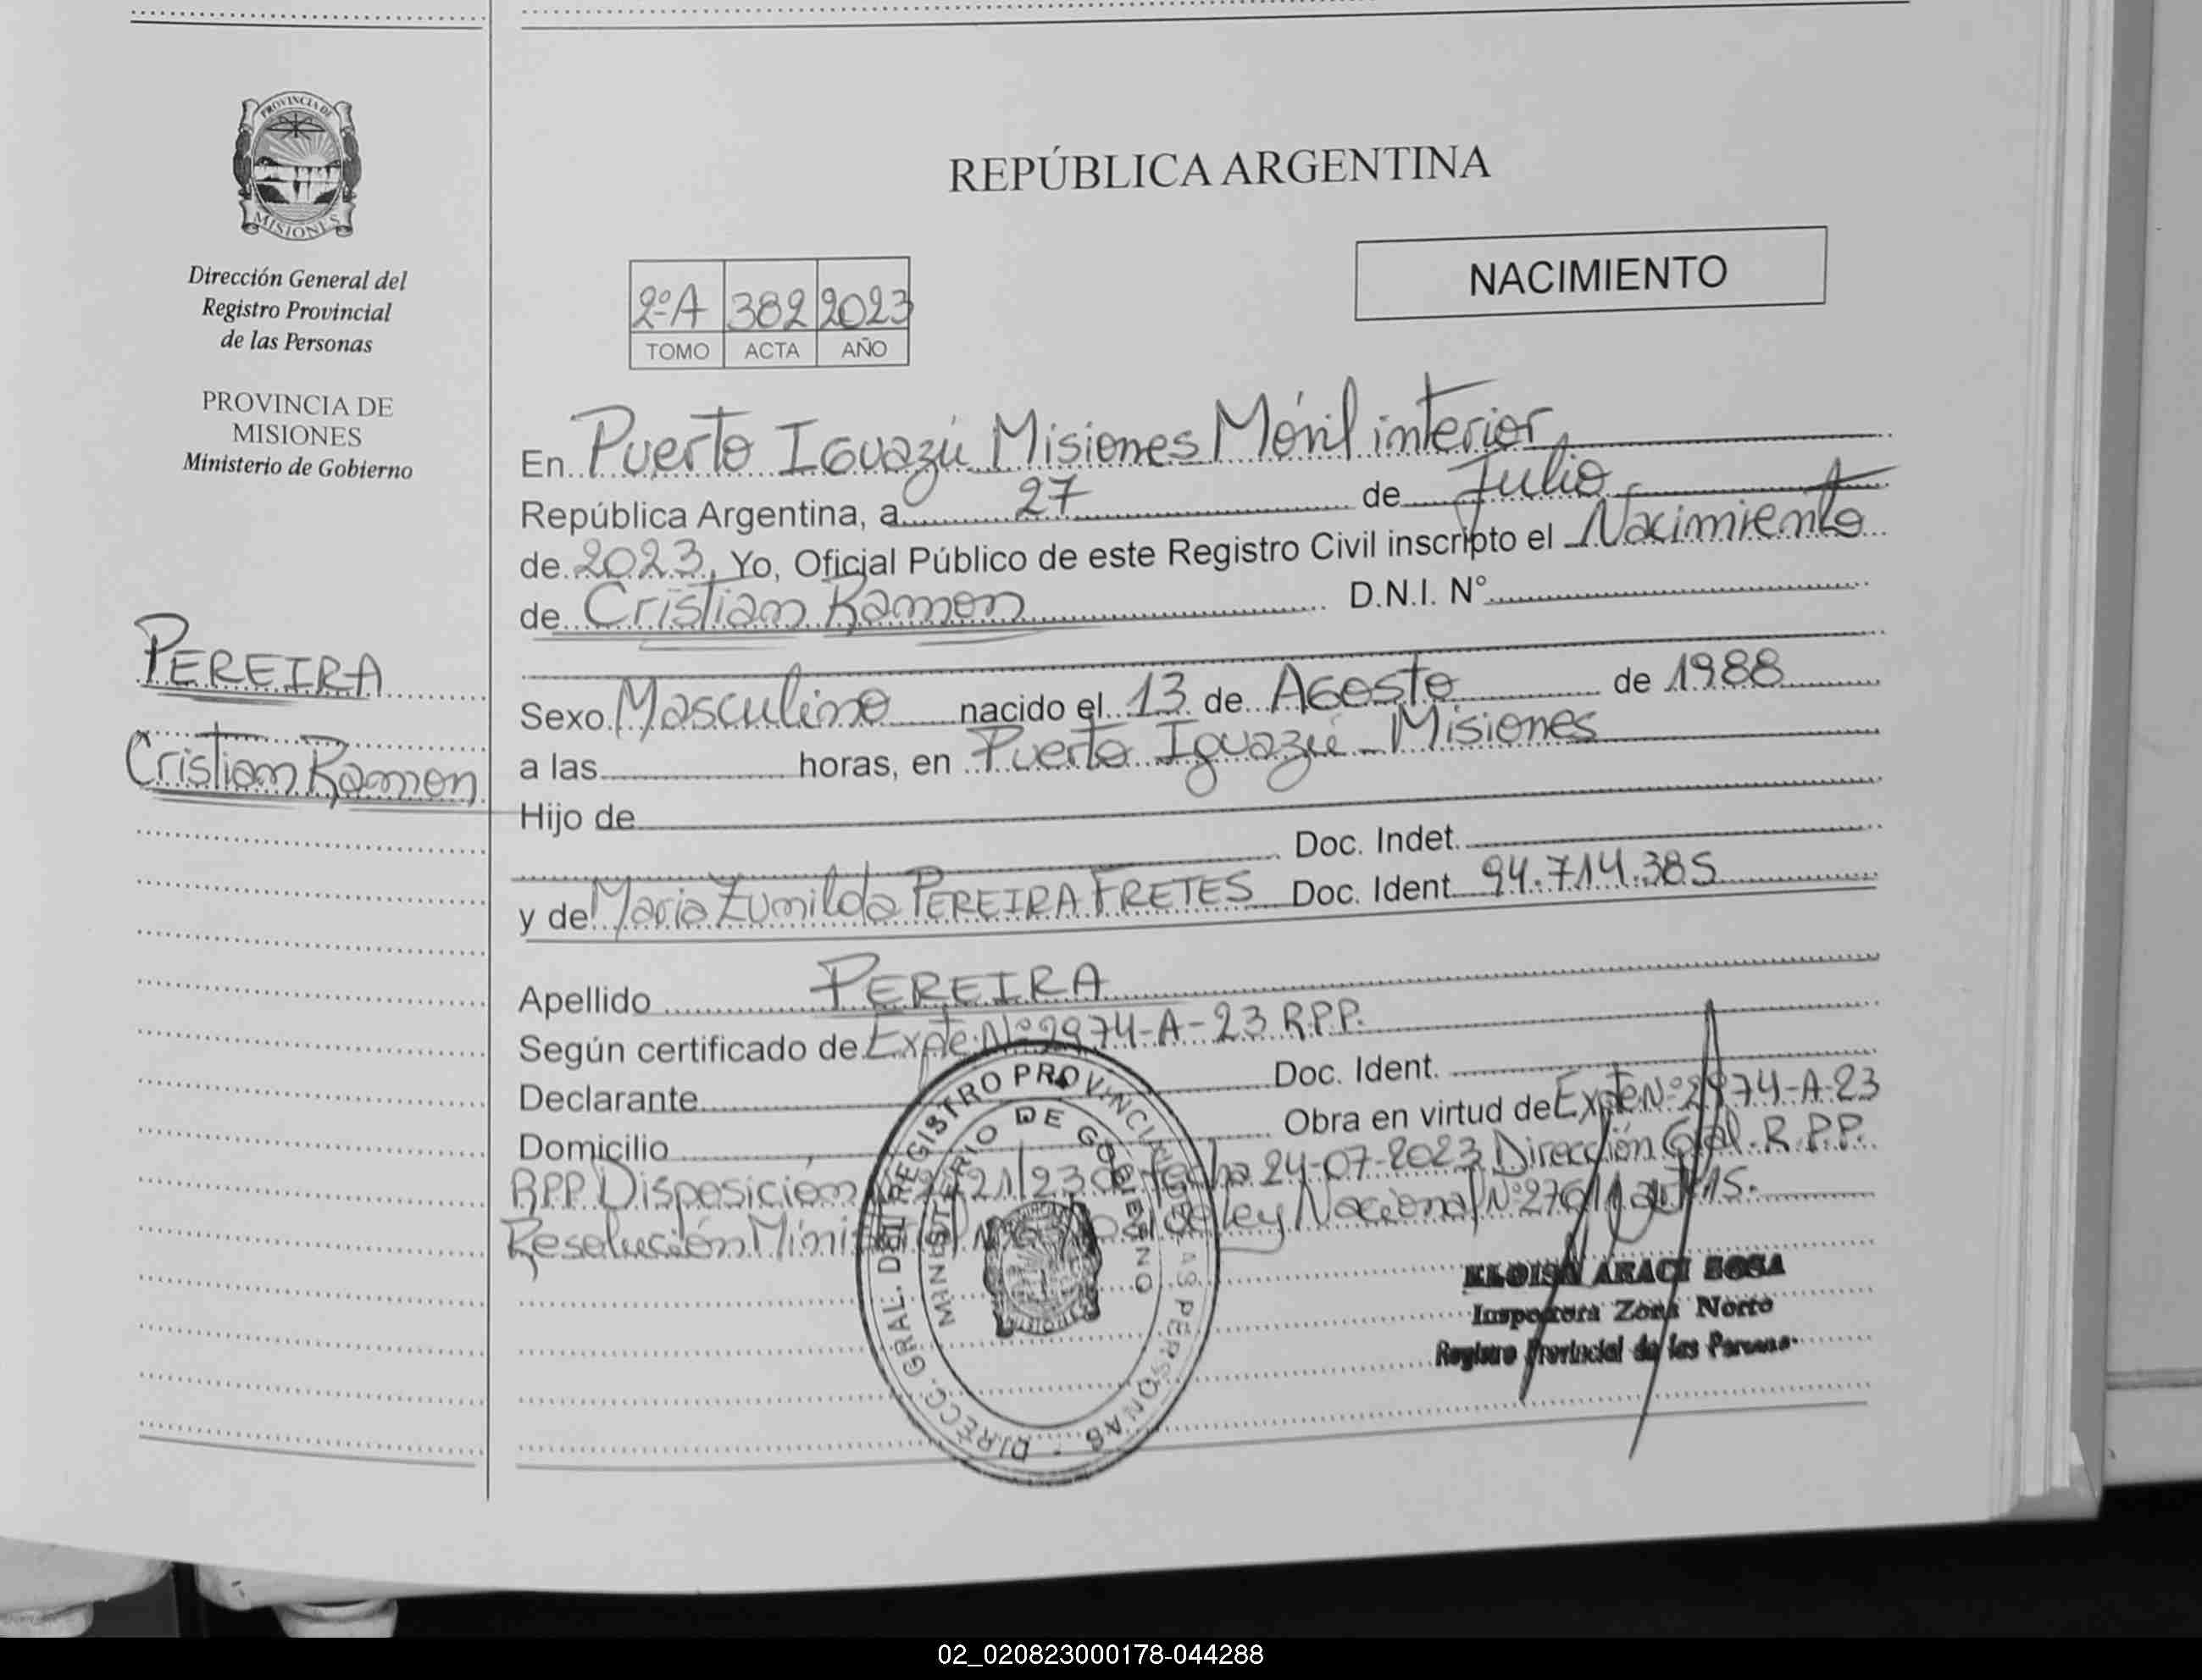 PROVINCIA DE
MISIONES
Dirección General del
Registro Provincial
de las Personas
PROVINCIA DE
MISIONES
Ministerio de Gobierno
PEREIRA
Cristian Ramon
REPÚBLICA ARGENTINA
NACIMIENTO
2ºA 382 2023
TOMO ACTA AÑO
En Puerto Iguazú Misiones Móvil interior
República Argentina, a 27 de Julio
de 2023, Yo, Oficial Público de este Registro Civil inscripto el Nacimiento
de Cristian Ramon D.N.I. Nº
Sexo Masculino nacido el 13 de Agosto de 1988
a las horas, en Puerto Iguazú - Misiones
Hijo de
Doc. Indet.
y de Maria Zunilda PEREIRA FRETES Doc. Ident. 94.714.385
Apellido PEREIRA
Según certificado de Expte. Nº 2974-A-23 R.P.P.
Declarante Doc. Ident.
Domicilio Obra en virtud de Expte Nº 2974-A-23
RPP Disposición 21/23 de fecha 24-07-2023 Dirección Gral. R.P.P.
Resolución Ley Nacional Nº
DIRECC. GRAL. DEL REGISTRO PROVINCIAL DE LAS PERSONAS -
MINISTERIO DE GOBIERNO
ELOISA ARACI SOSA
Inspectora Zona Norte
Registro Provincial de las Personas
02_020823000178-044288